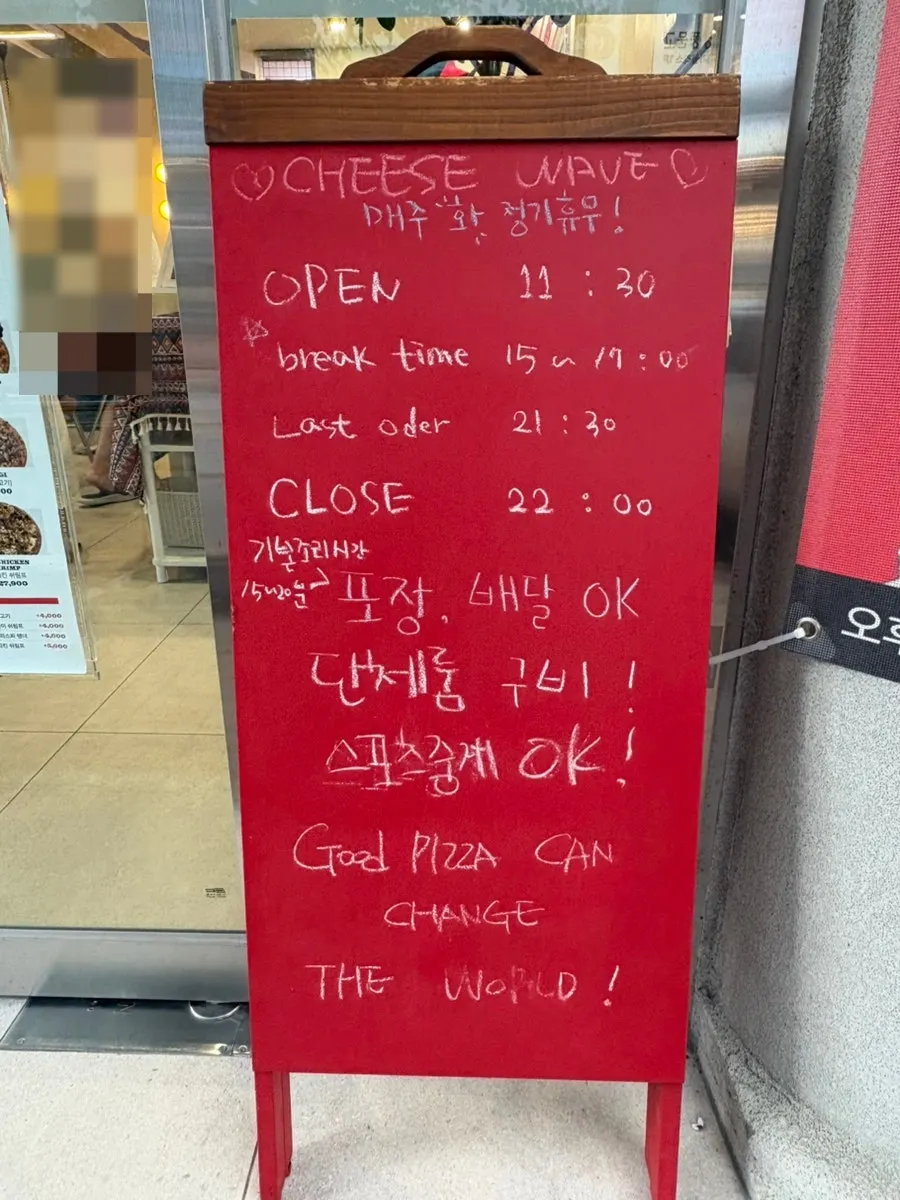 CHEESE WAVE
매주 "화" 정기휴무!
OPEN 11 : 30
break time 15 ~ 17 : 00
Last oder 21 : 30
CLOSE 22 : 00
기본조리시간
15~20분
포장, 배달 OK
단체룸 구비 !
스포츠중계 OK!
Good PIZZA CAN
CHANGE
THE WORLD !
CHICKEN
27,900
+4,000
오후